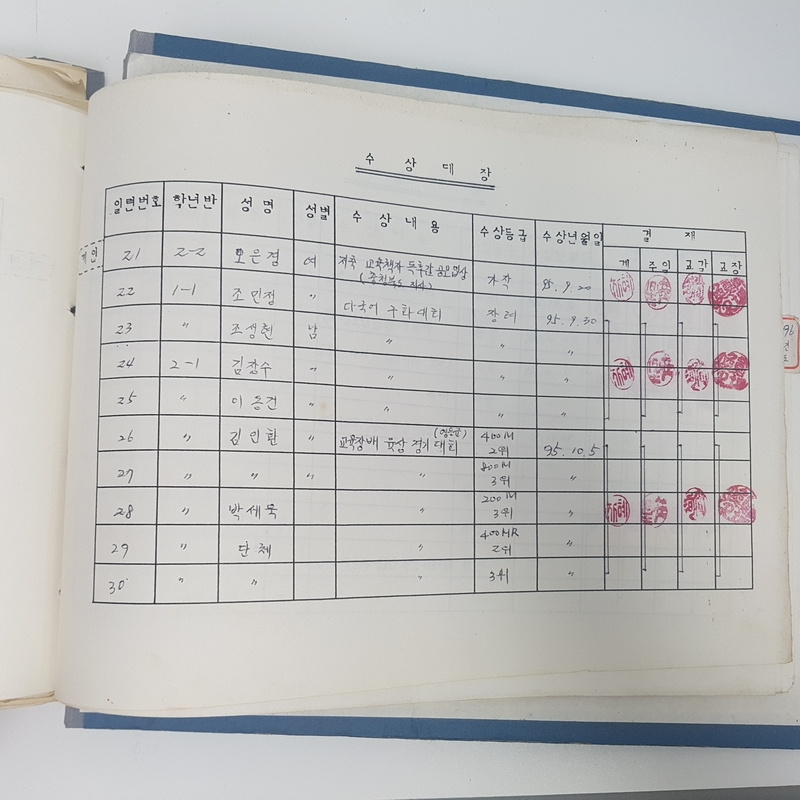 수 상 대 장
일련번호 학년반 성 명 성별 수 상 내 용 수상등급 수상년월일 결 재
계 주임 교감 교장
21 2-2 모은경 여 교육책자 독후감 공모입상 가작 95.9.20
22 1-1 조민정 〃 다국어 구화대회 장려 95.9.30
23 〃 조생현 남 〃 〃
24 2-1 김장수 〃 〃 〃
25 〃 이동건 〃 〃
26 〃 김인환 〃 교육장배 육상 경기 대회 400M 2위 95.10.5
27 〃 〃 〃 〃 800M 3위 〃
28 〃 박세욱 〃 200M 3위 〃
29 〃 단체 〃 400MR 2위 〃
30 〃 〃 〃 3위 〃
96